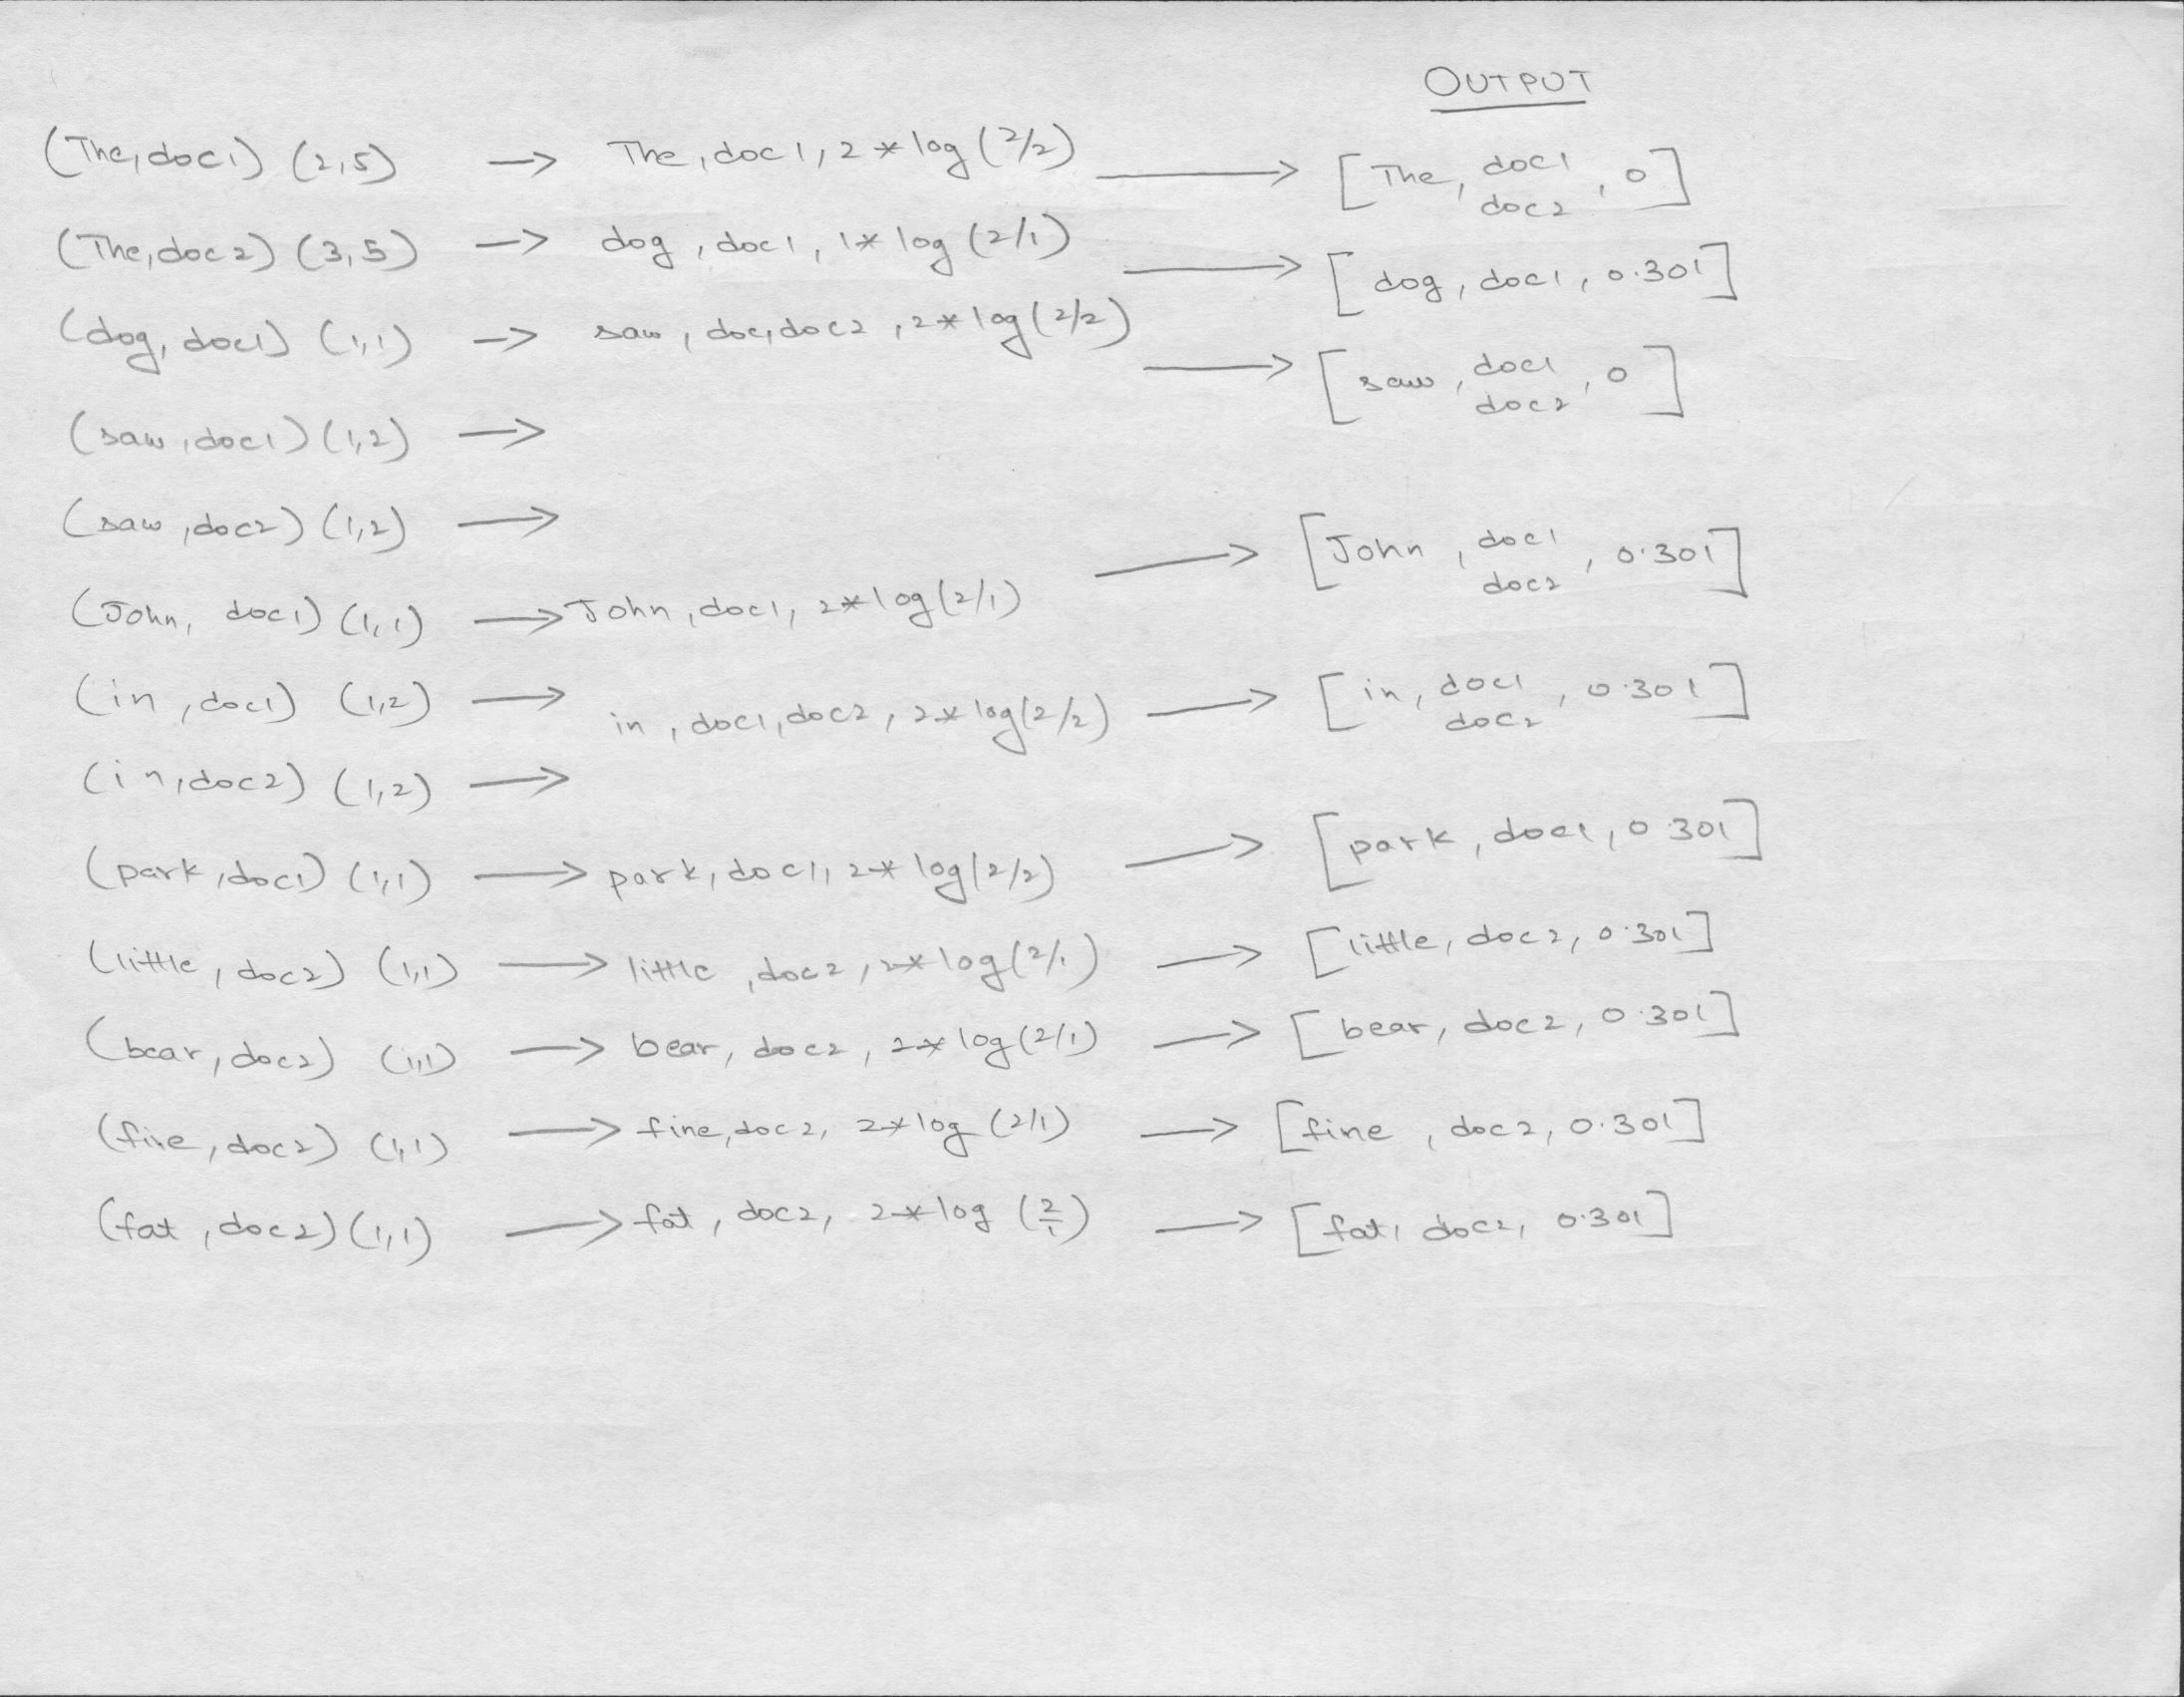 OUTPUT
(The, doc1) (2,5) → The, doc1, 2 * log (2/2) → [The, doc1 doc2, 0]
(The, doc2) (3,5) → dog, doc1, 1 * log (2/1) → [dog, doc1, 0.301]
(dog, doc1) (1,1) → saw, doc1 doc2, 2 * log (2/2) → [saw, doc1 doc2, 0]
(saw, doc1) (1,2) →
(saw, doc2) (1,2) →
(John, doc1) (1,1) → John, doc1, 2 * log (2/1) → [John, doc1 doc2, 0.301]
(in, doc1) (1,2) → in, doc1, doc2, 2 * log (2/2) → [in, doc1 doc2, 0.301]
(in, doc2) (1,2) →
(park, doc1) (1,1) → park, doc1, 2 * log (2/2) → [park, doc1, 0.301]
(little, doc2) (1,1) → little, doc2, 2 * log (2/1) → [little, doc2, 0.301]
(bear, doc2) (1,1) → bear, doc2, 2 * log (2/1) → [bear, doc2, 0.301]
(fine, doc2) (1,1) → fine, doc2, 2 * log (2/1) → [fine, doc2, 0.301]
(fat, doc2) (1,1) → fat, doc2, 2 * log (2/1) → [fat, doc2, 0.301]